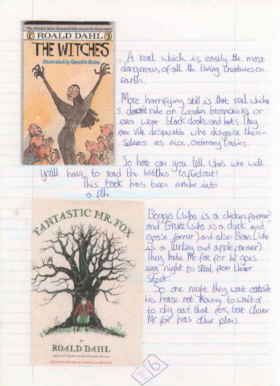 ROALD DAHL
THE WITCHES
Illustrated by Quentin Blake
A real witch is easily the most
dangerous, of all the living creatures on
earth.
More horrifying still is that real witches
don't ride on London broomsticks or
even wear black cloaks and hats. They
are vile despicable who disguise them-
selves as nice, ordinary ladies.
So how can you tell. Well we will
you'll have to read the Witches to find out!
This book has been made into
a film.
FANTASTIC MR. FOX
BY
ROALD DAHL
Boggis (who is a chicken farmer)
and (who is a duck and
goose farmer) and also Bean (who
is a turkey and apple farmer).
They hate Mr fox for he goes
every night to steal from their
So one night they wait outside
his house not to wait or
to dig out that fox, but clever
Mr fox has other plans